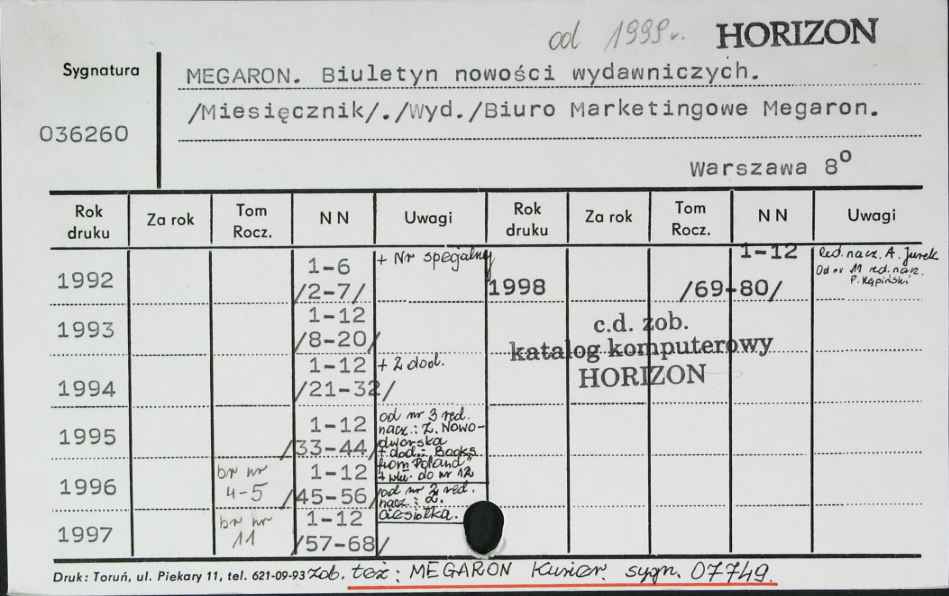 od 1999 r. HORIZON
Sygnatura
036260
MEGARON. Biuletyn nowości wydawniczych.
/Miesięcznik/./Wyd./Biuro Marketingowe Megaron.
Warszawa 8°
Rok druku Za rok Tom Rocz. N N Uwagi Rok druku Za rok Tom Rocz. N N Uwagi
1992 1-6 /2-7/ + Nr specjalny
1993 1-12 /8-20/
1994 1-12 /21-32/ + 2 dod.
1995 1-12 /33-44/ od nr 3 red.
nacz.: Z. Nowo-
dworska
+ dod.: Books
from Poland"
+ wkł. do nr 12
1996 br nr 4-5 1-12 /45-56/ od nr 2 red.
nacz.: Z.
1997 br nr 11 1-12 /57-68/
1998 1-12 /69-80/ Red. nacz. A. Jurek
Od nr 11 red. nacz.
P. Kąpiński
c.d. zob.
katalog komputerowy
HORIZON
Druk: Toruń, ul. Piekary 11, tel. 621-09-93 zob. też: MEGARON Kurier. sygn. 07749.